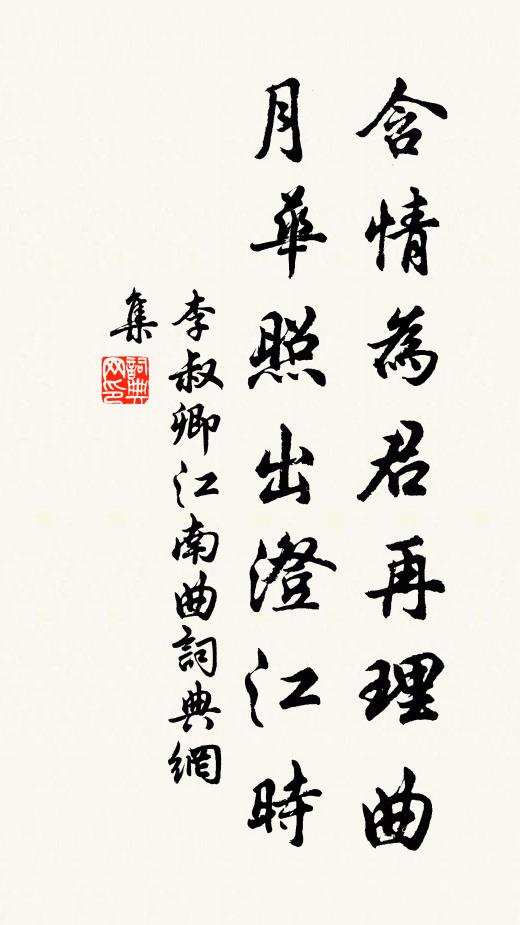 含情為君再理曲
月華照出澄江時
李叔卿江南曲詞典網
集
詞典
网印